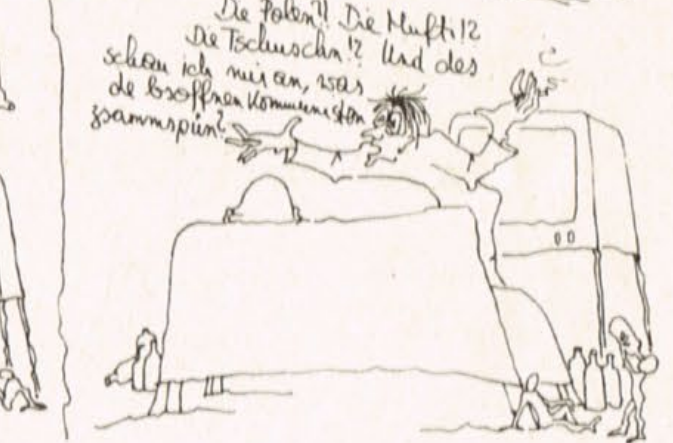 Die Polen?! Die Mufti!?
Die Tschuschn!? Und des
schau ich mir an, was
de bsoffnen Kommunisten
zsammspüln?